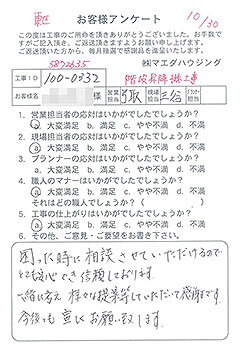 お客様アンケート
10/30
この度は工事のご用命を頂きありがとうございました。お手数で
すがご記入頂き、ご返送頂きますようお願い申し上げます。
ご返送頂いた方から、毎月抽選で感謝品を進呈いたします。
5872635
㈱マエダハウジング
工事ID 100-0332
階段昇降機工事
お名前 様 営業担当 現場担当 三谷 プランナー担当
1. 営業担当者の応対はいかがでしたでしょうか?
a. 大変満足 b. 満足 c. やや不満 d. 不満
2. 現場担当者の応対はいかがでしたでしょうか?
a. 大変満足 b. 満足 c. やや不満 d. 不満
3. プランナーの応対はいかがでしたでしょうか?
a. 大変満足 b. 満足 c. やや不満 d. 不満
4. 職人のマナーはいかがでしたでしょうか?
a. 大変満足 b. 満足 c. やや不満 d. 不満
それはどの職人でしょうか?( )
5. 工事の仕上がりはいかがでしたでしょうか?
a. 大変満足 b. 満足 c. やや不満 d. 不満
6. その他、ご意見・ご要望をお書き下さい。
困った時に相談させていただけるので
とても安心でき信頼しております。
一緒に考え 様々な提案等していただいて感謝です。
今後も宜しくお願い致します。